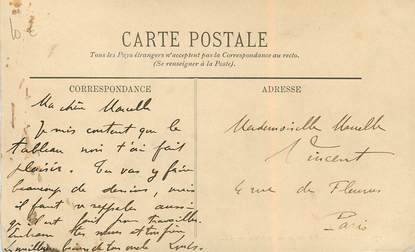 10 €
CARTE POSTALE
Tous les Pays étrangers n'acceptent pas la Correspondance au recto.
(Se renseigner à la Poste).
CORRESPONDANCE
ADRESSE
Ma chère Marcelle
Je suis content que le
tableau noir t'ai fait
plaisir. Tu vas y faire
beaucoup de dessins, mais
il faut te rappeler aussi
qu'il est fait pour travailler.
Mademoiselle Marcelle
Vincent
6 rue de Fleurus
Paris